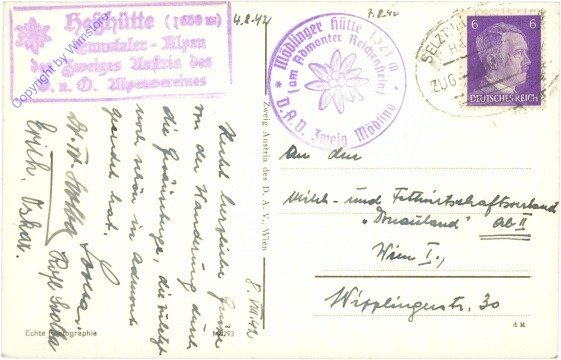 Heßhütte (1699 m)
Ennstaler-Alpen
des Zweiges Austria des
D. u. Ö. Alpenvereines
Copyright by Wimstore
4.8.42
7.8.42
Mödlinger Hütte 1521 m
(am Admonter Reichenstein)
D.A.V. Zweig Mödling
SELZT
ZUG
6 6
DEUTSCHES REICH
Recht herzliche Grüße
von der Wanderung durch
die Gesäuseberge, die zuletzt
noch schön in Admont
geendet hat.
Erich. Oskar.
8. VIII. 42
Zweig Austria des D. A. V., Wien
An den
Milch- und Fettwirtschaftsverband
"Donauland" Ab II
Wien I.,
Wipplingerst. 30
Echte Photographie
d M